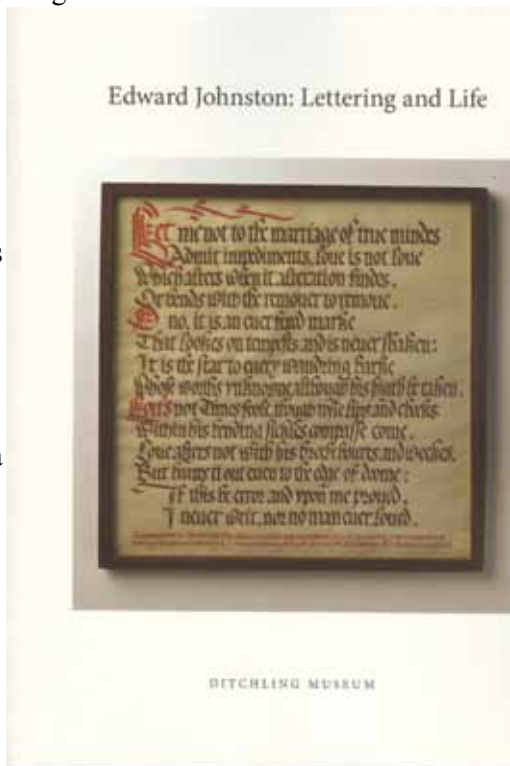 g
Edward Johnston: Lettering and Life
s
Let me not to the marriage of true mindes
Admit impediments, loue is not loue
Which alters when it alteration findes,
Or bends with the remouer to remoue.
O no, it is an euer fixed marke
That lookes on tempests and is neuer shaken:
It is the star to euery wandring barke
Whose worths vnknowne, although his higth be taken.
Lou's not Times foole, though rosie lips and cheeks
Within his bending sickles compasse come,
a
Loue alters not with his breefe houres and weekes,
But beares it out euen to the edge of doome:
If this be error and vpon me proued,
I neuer writ, nor no man euer loued.
DITCHLING MUSEUM